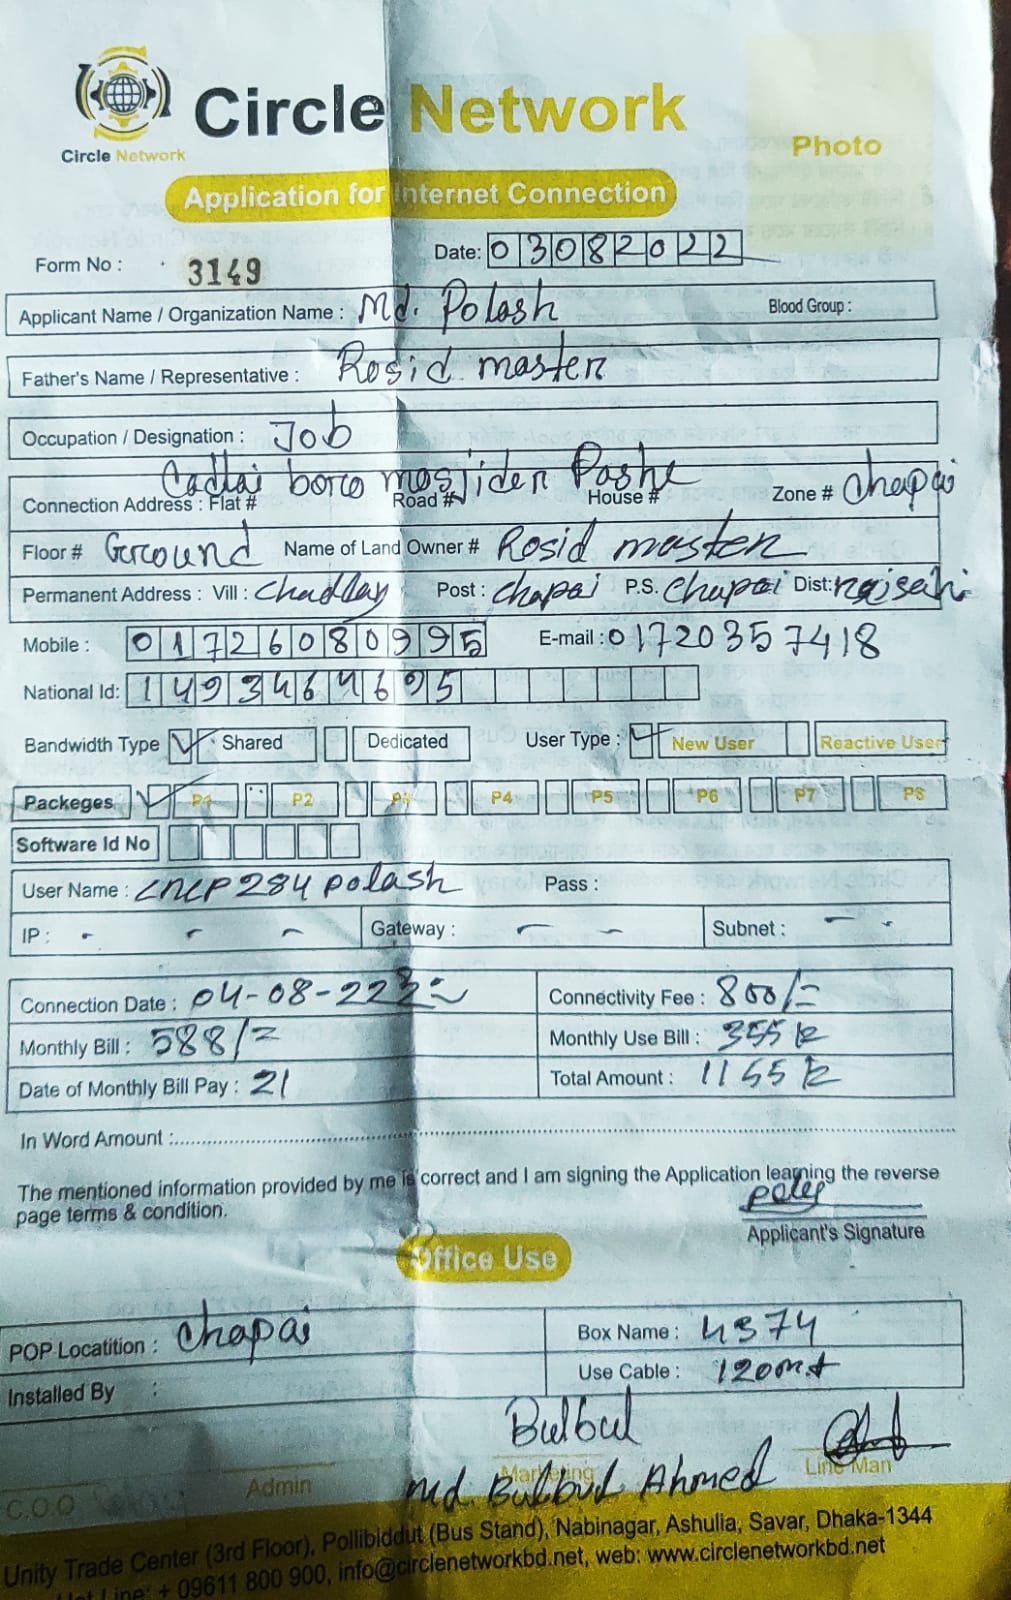 Circle Network
Circle Network
Photo
Application for Internet Connection
Form No : 3149
Date: 03082022
Applicant Name / Organization Name : Md. Polash
Blood Group :
Father's Name / Representative : Rosid master
Occupation / Designation : Job
Cadlai boro mosjider Pashe
Connection Address : Flat # Road # House # Zone # Chapai
Floor # Ground Name of Land Owner # Rosid master
Permanent Address : Vill : Chadlay Post : Chapai P.S. Chapai Dist:
Mobile : 01726080995 E-mail : 01720357418
National Id: 1493464695
Bandwidth Type Shared Dedicated User Type : New User Reactive User
Packeges P1 P2 P3 P4 P5 P6 P7 P8
Software Id No
User Name : CNCP284polash Pass :
IP : - - - Gateway : - - Subnet : - -
Connection Date : 04-08-22 Connectivity Fee : 800/=
Monthly Bill : 588/= Monthly Use Bill : 355
Date of Monthly Bill Pay : 21 Total Amount : 1155
In Word Amount :
The mentioned information provided by me is correct and I am signing the Application learning the reverse
page terms & condition.
Applicant's Signature
Office Use
POP Locatition : Chapai Box Name : 4374
Installed By : Use Cable : 120mt
Bulbul
C.O.O Admin Marketing Line Man
Md. Bulbul Ahmed
Unity Trade Center (3rd Floor), Pollibiddut (Bus Stand), Nabinagar, Ashulia, Savar, Dhaka-1344
Hot Line: + 09611 800 900, info@circlenetworkbd.net, web: www.circlenetworkbd.net